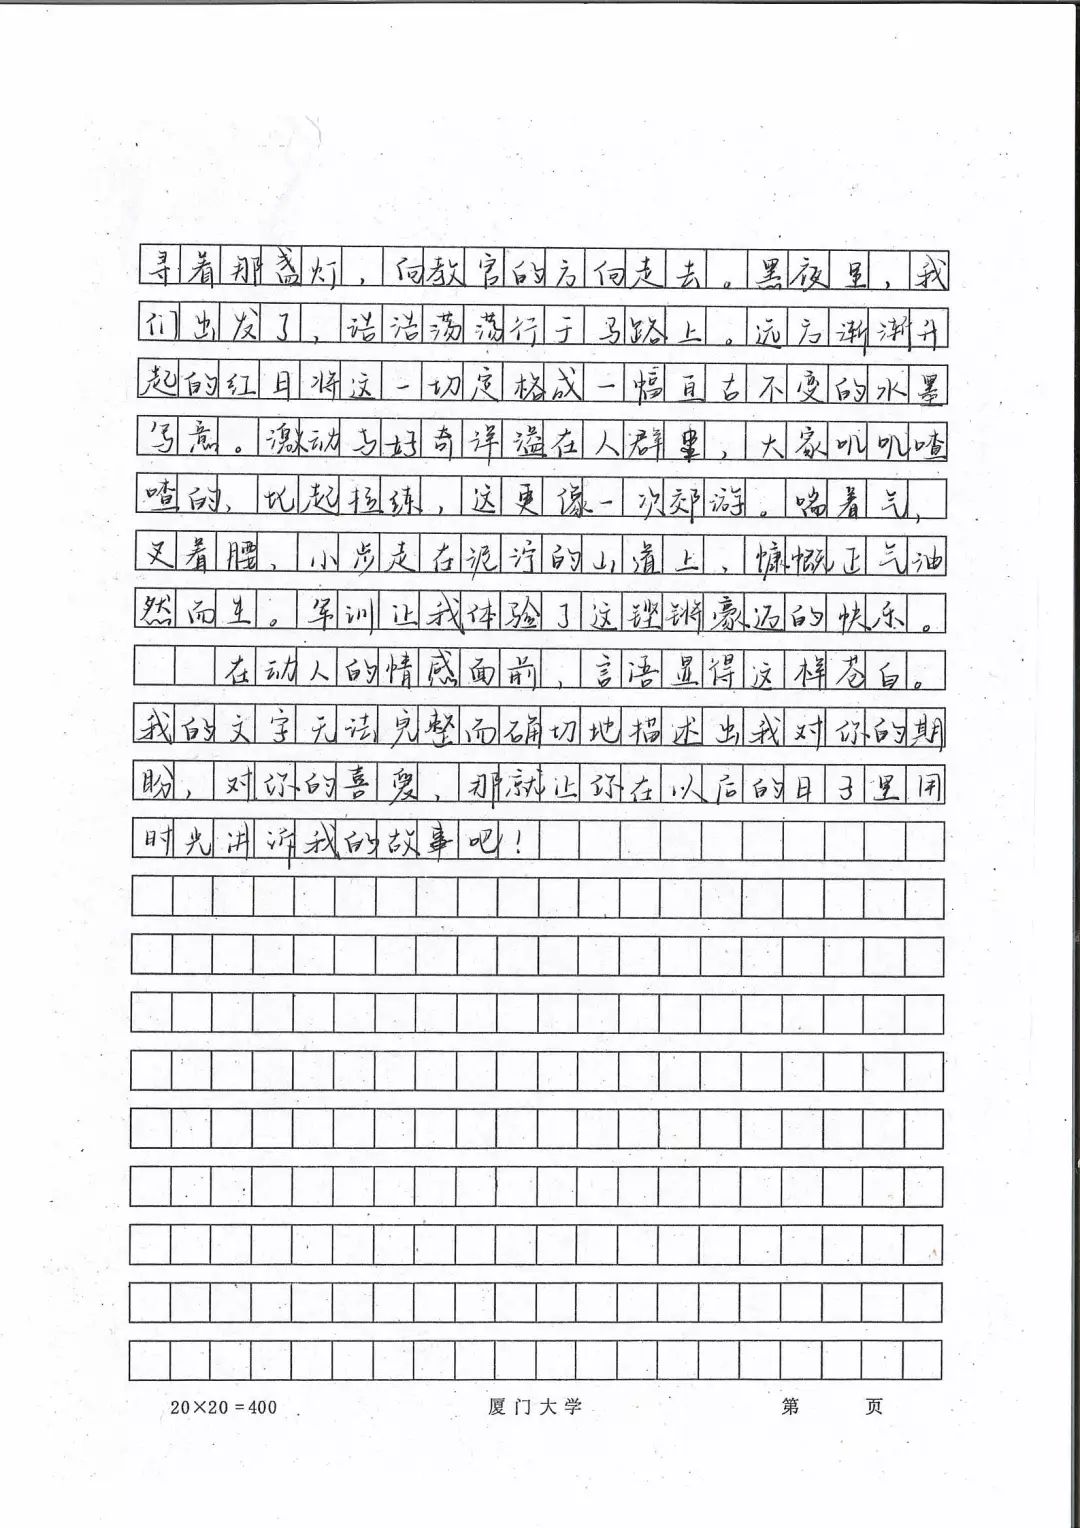 寻着那盏灯，向教官的方向走去。黑夜里，我
们出发了，浩浩荡荡行于马路上。远方渐渐升
起的红日将这一切定格成一幅亘古不变的水墨
写意。激动与好奇洋溢在人群里，大家叽叽喳
喳的，比起拉练，这更像一次郊游。喘着气，
叉着腰，小步走在泥泞的山道上，慷慨正气油
然而生。军训让我体验了这铿锵豪迈的快乐。
在动人的情感面前，言语显得这样苍白。
我的文字无法完整而确切地描述出我对你的期
盼，对你的喜爱，那就让你在以后的日子里用
时光讲诉我的故事吧！
20×20=400 厦门大学 第 页